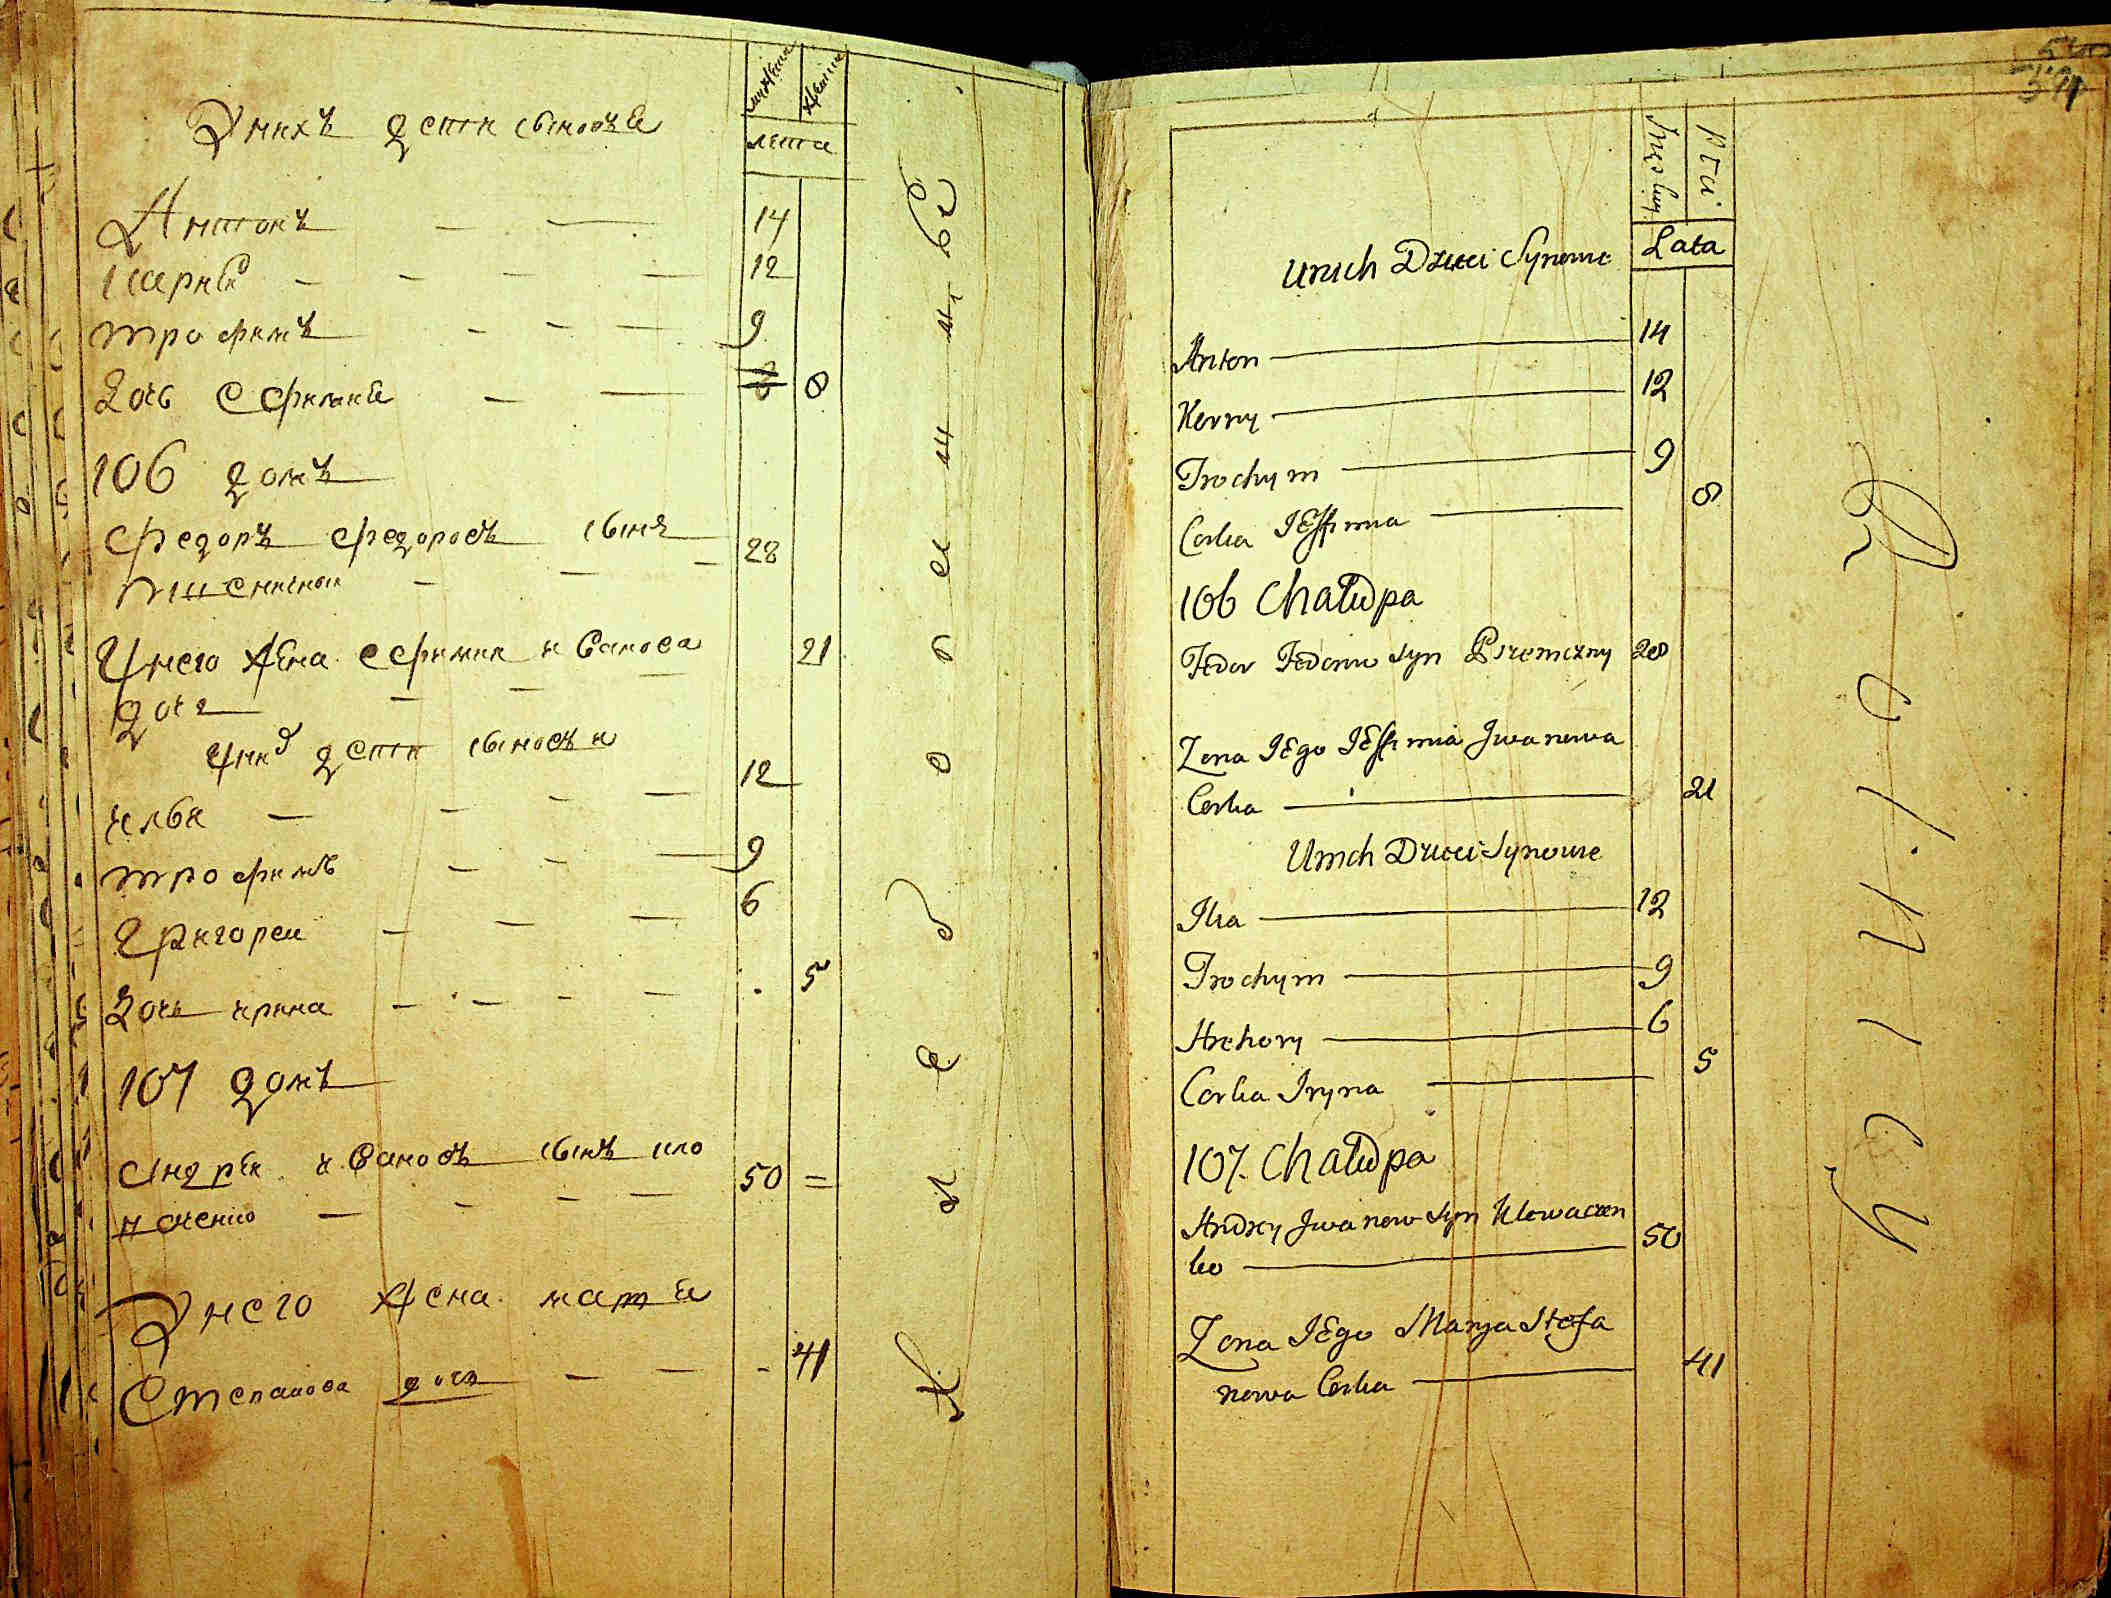 мужеска
женска
лета
Унихъ дети сыновья
Антонъ — — 14
Карнѣй — — — — 12
трофимъ — — — 9
дочь Ефимия — — 8
106 домъ
Федоръ Федоровъ сынъ 28
пшеничный — — —
Унего жена Ефимия иванова 21
дочь — — —
Уних дети сыновья
илья — — — — 12
трофимъ — — — 9
Григореи — — — 6
дочь ирина — — — — 5
107 домъ
Андрѣй ивановъ сынъ кло 50 =
Унего жена марья
Степанова дочь — — - 41
Męskiey
Płci
Lata
Unich Dzieci Synowie
Anton — 14
Karny — 12
Trochym — 9
Corka JEffimia — 8
106 Chałupa
Fedor Fedorow Syn Pszeniczny 28
Zona JEgo JEffimia Jwanowa
Corka — 21
Unich Dzieci Synowie
Ilia — 12
Trochym — 9
Hrehory — 6
Corka Iryna — 5
107. Chałupa
Andrzy Jwanow Syn Klewaczen
ko — 50
Zona JEgo Marya Stefa
nowa Corka — 41